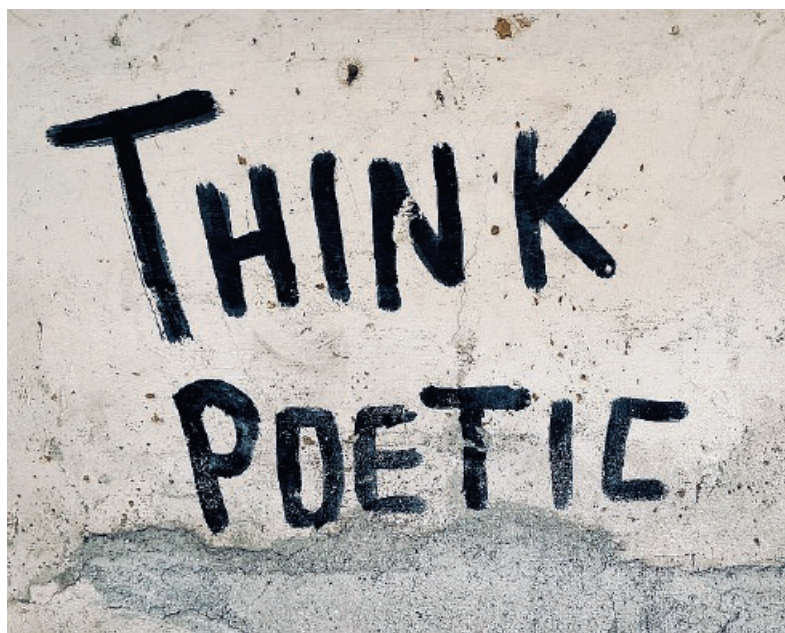 THINK
POETIC